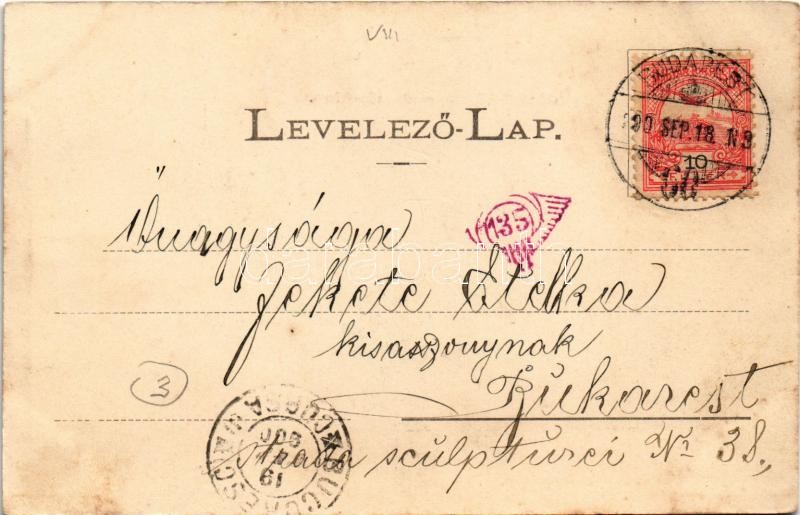 LEVELEZŐ-LAP.
BUDAPEST
900 SEP. 18. N3
10
135
Őnagysága
Fekete Etelka
kisasszonynak
Bukarest
strada sculpturei No 38.,
3
BUCURESCI
19
900